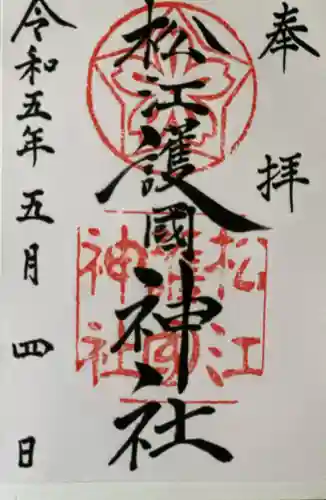 奉拝
松江護國神社
松江
護國
神社
令和五年五月四日